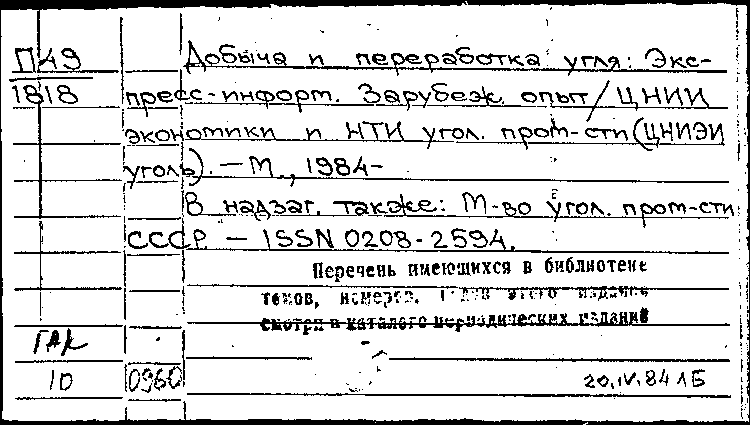 П49 Добыча и переработка угля: Экс-
1818 пресс-информ. Зарубеж. опыт / ЦНИИ
экономики и НТИ угол. пром-сти (ЦНИЭИ
уголь). — М., 1984-
В надзаг. также: М-во угол. пром-сти
СССР. — ISSN 0208-2594.
Перечень имеющихся в библиотеке
томов, номеров, годов этого издания
смотри в каталоге периодических изданий
ГАК
10 0960 20.IV.84 ЛБ